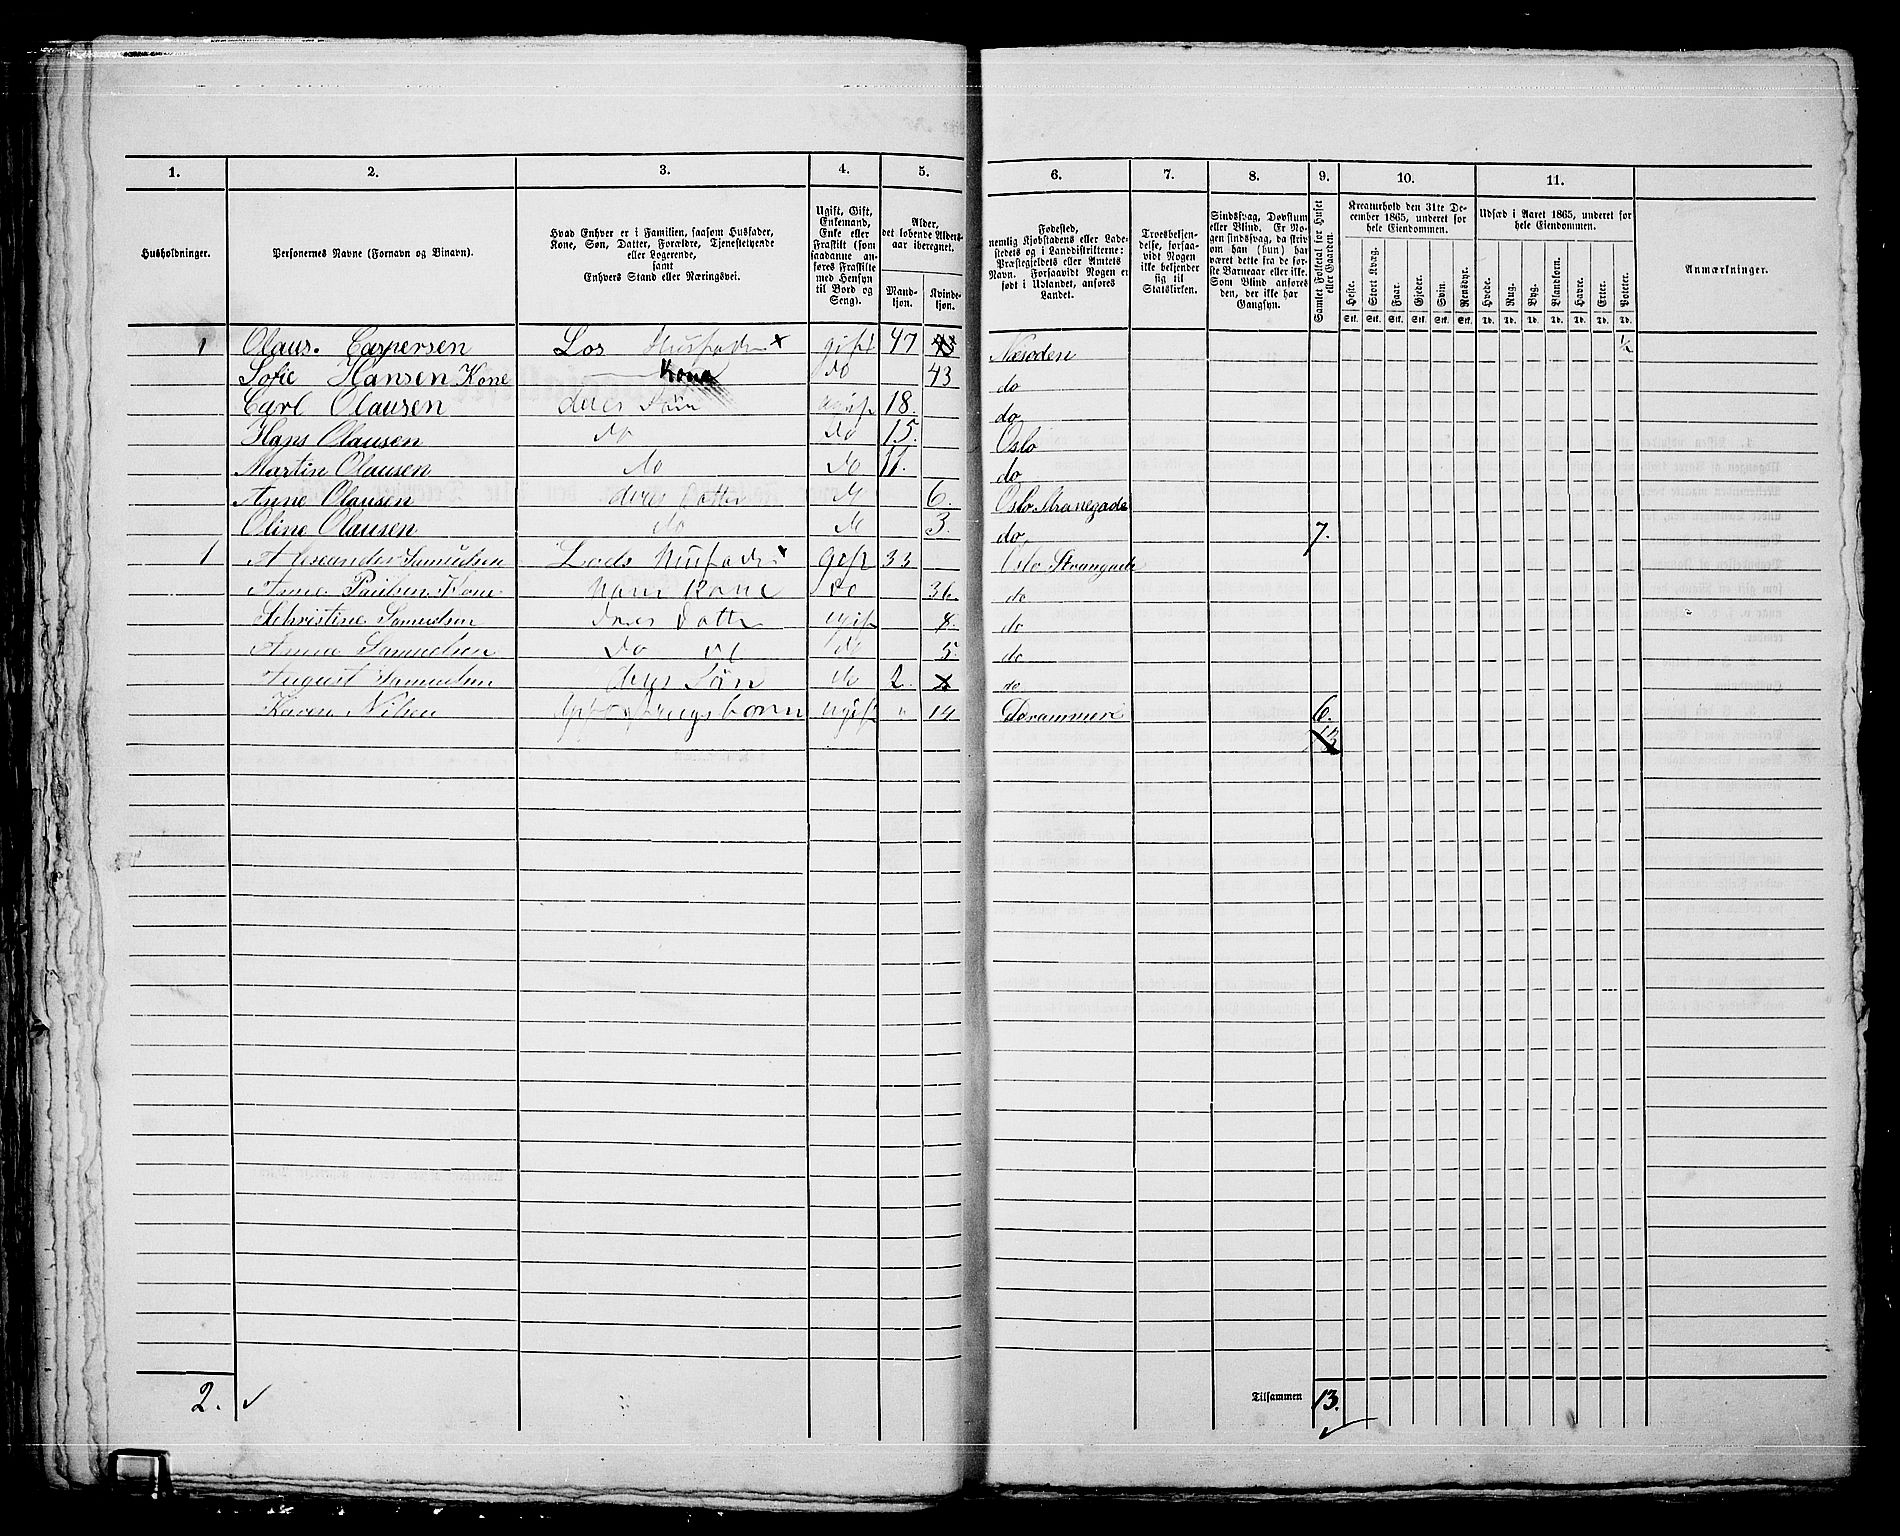 1. 2. 3. 4. 5. 6. 7. 8. 9. 10. 11.
Husholdninger.
Personernes Navne (Fornavn og Binavn).
Hvad Enhver er i Familien, saasom Husfader,
Kone, Søn, Datter, Forældre, Tjenestetyende
eller Logerende,
samt
Enhvers Stand eller Næringsvei.
Ugift, Gift,
Enkemand,
Enke eller
Fraskilt (som
saadanne an-
føres Fraskilte
med Hensyn
til Bord og
Seng).
Alder,
det løbende Alders-
aar iberegnet.
Mand-
kjøn.
Kvinde-
kjøn.
Fødested,
nemlig Kjøbstadens eller Lade-
stedets og i Landdistrikterne:
Præstegjeldets eller Amtets
Navn. Forsaavidt Nogen er
født i Udlandet, anføres
Landet.
Troesbekjen-
delse, forsaa-
vidt Nogen
ikke bekjender
sig til
Statskirken.
Sindssvag, Døvstum
eller Blind. Er No-
gen sindssvag, da skriv
om han (hun) har
været dette fra de før-
ste Barneaar eller ikke.
Som Blind anføres
den, der ikke har
Gangsyn.
Samlet Folketal for Huset
eller Gaarden.
Kreaturhold den 31te De-
cember 1865, underet for
hele Eiendommen.
Heste. Stort Kvæg. Faar. Gjeder. Svin. Rensdyr.
Stk. Stk. Stk. Stk. Stk. Stk.
Udsæd i Aaret 1865, underet for
hele Eiendommen.
Hvede. Rug. Byg. Blandkorn. Havre. Erter. Poteter.
Td. Td. Td. Td. Td. Td. Td.
Anmærkninger.
1 Olaus. Caspersen Los Husfader x gift 47 43 Næsoden ½
Sofie Hansen Kone Kone do 43 do
Carl Olausen deres Søn ugift 18. do
Hans Olausen do do 15. Oslo
Martin Olausen do do 11. do
Anne Olausen deres Datter do 6. Oslo Strangade
Oline Olausen do do 3. do 7.
1 Alexander Samuelsen Lods Husfader x gift 33 Oslo Strangade
Anne Paulsen Kone hans Kone do 36. do
Kchristine Samuelsen deres Datter ugift 8. do
Anna Samuelsen do do 5. do
August Samuelsen deres Søn do 2. do
Karen Nilsen Opfostringsbarn ugift " 14 Drammen 6.
13
2. ✓ Tilsammen 13. ✓